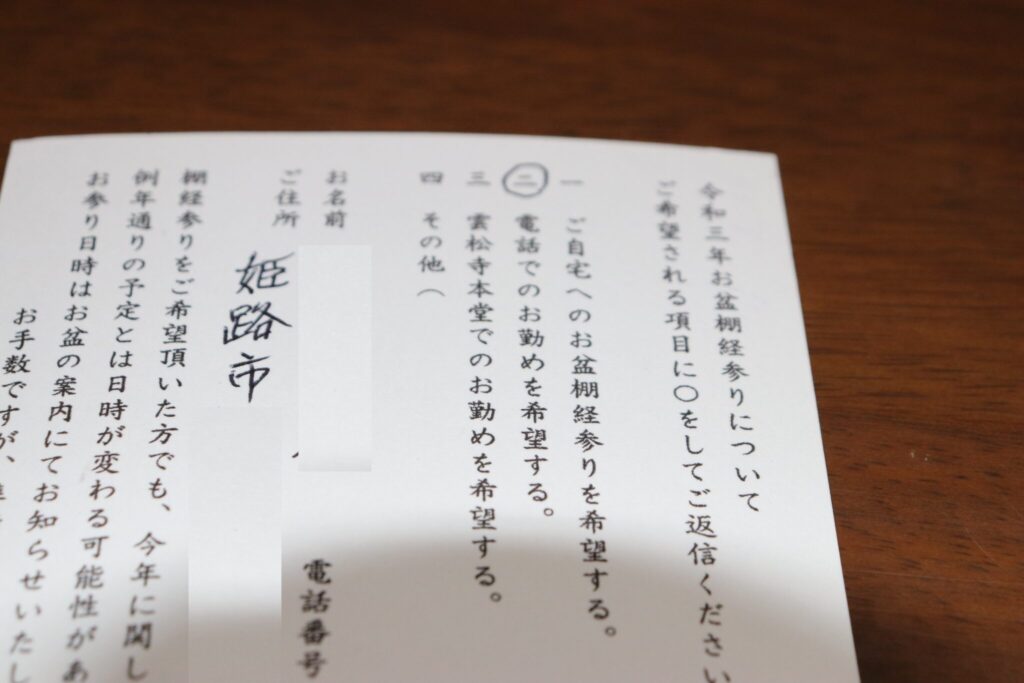 令和三年お盆棚経参りについて
ご希望される項目に〇をしてご返信ください
一 ご自宅へのお盆棚経参りを希望する。
二 電話でのお勤めを希望する。
三 雲松寺本堂でのお勤めを希望する。
四 その他（
お名前
電話番号
ご住所 姫路市
棚経参りをご希望頂いた方でも、今年に関し
例年通りの予定とは日時が変わる可能性があ
お参り日時はお盆の案内にてお知らせいたし
お手数ですが、